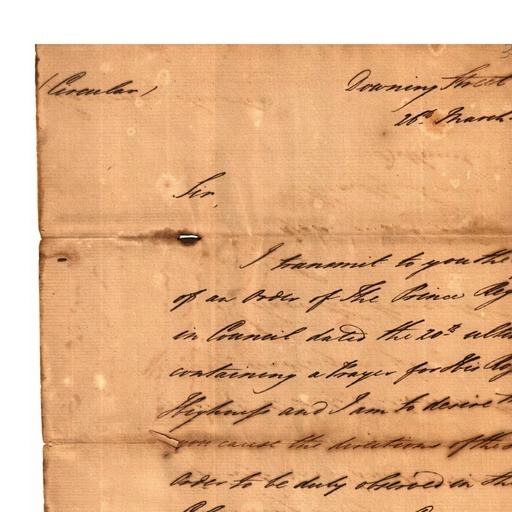 (Circular)
Downing Street
26th March
Sir,
I transmit to you the
of an Order of The Prince Reg
in Council dated the 20th ult
containing a Prayer for His Roy
Highness and I am to desire
you cause the directions of the
Order to be duly observed in the